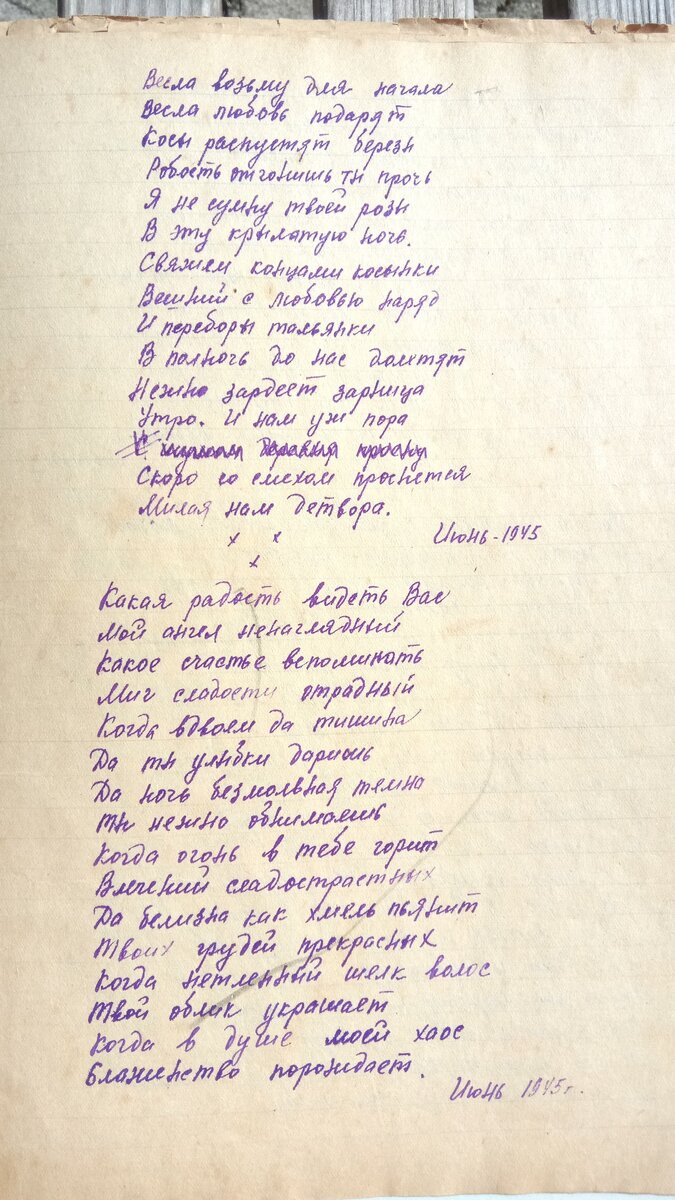 Весла возьму для начала
Весла любовь подарят
Косы распустят березы
Робость отгонишь ты прочь
Я не сумну твоей розы
В эту крылатую ночь.
Свяжем концами косынки
Вешний с любовью наряд
И переборы тальянки
В полночь до нас долетят
Нежно зардеет зарница
Утро. И нам уж пора
Скоро со смехом проснется
Милая нам детвора.
Июнь-1945
х х
х
Какая радость видеть Вас
Мой ангел ненаглядный
Какое счастье вспоминать
Миг сладости отрадный
Когда вдвоем да тишина
Да ты улыбки даришь
Да ночь безмолвная темна
Ты нежно обнимаешь
Когда огонь в тебе горит
Влечений сладострастных
Да белизна как хмель пьянит
Твоих грудей прекрасных
Когда нетленный шелк волос
Твой облик украшает
Когда в душе моей хаос
Блаженство порождает.
Июнь 1945г.